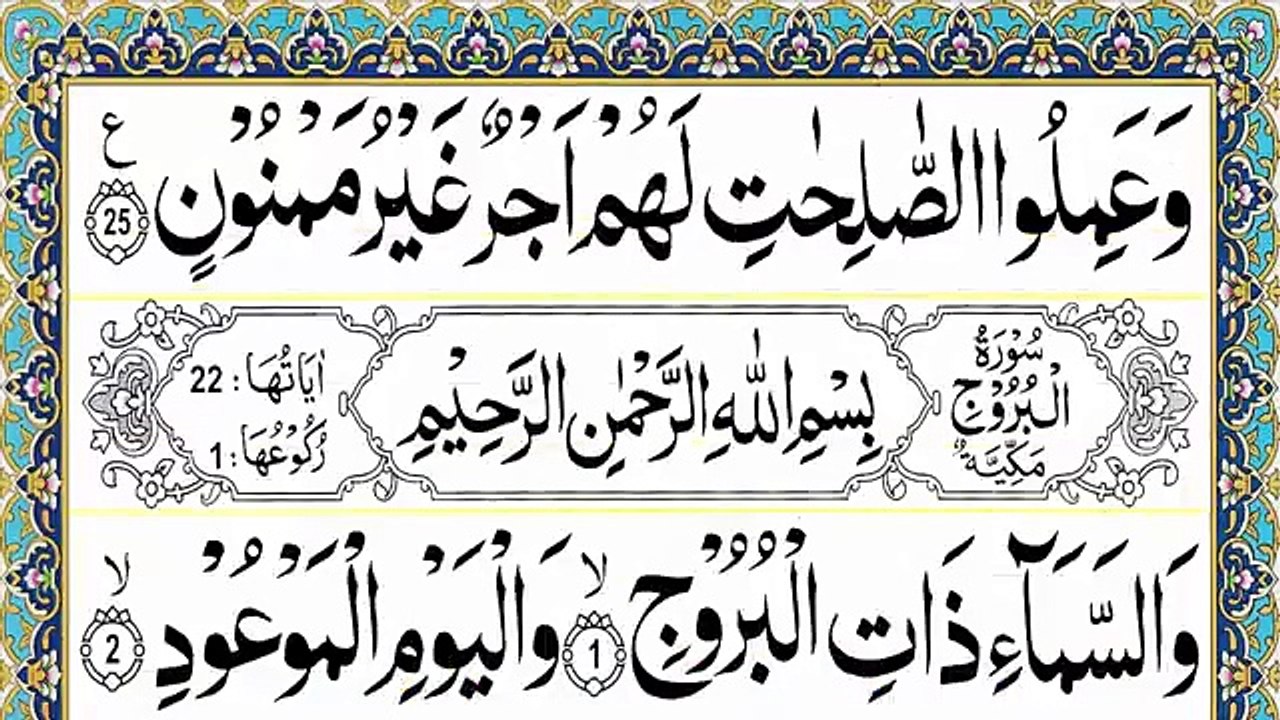 وَعَمِلُوا الصّٰلِحٰتِ لَهُمْ اَجْرٌ غَيْرُ مَمْنُوْنٍ 25 ع
سُوْرَةُ الْبُرُوْجِ مَكِّيَّةٌ
بِسْمِ اللّٰهِ الرَّحْمٰنِ الرَّحِيْمِ
اٰيَاتُهَا : 22
رُكُوْعُهَا : 1
وَالسَّمَآءِ ذَاتِ الْبُرُوْجِ 1 لا وَالْيَوْمِ الْمَوْعُوْدِ 2 لا